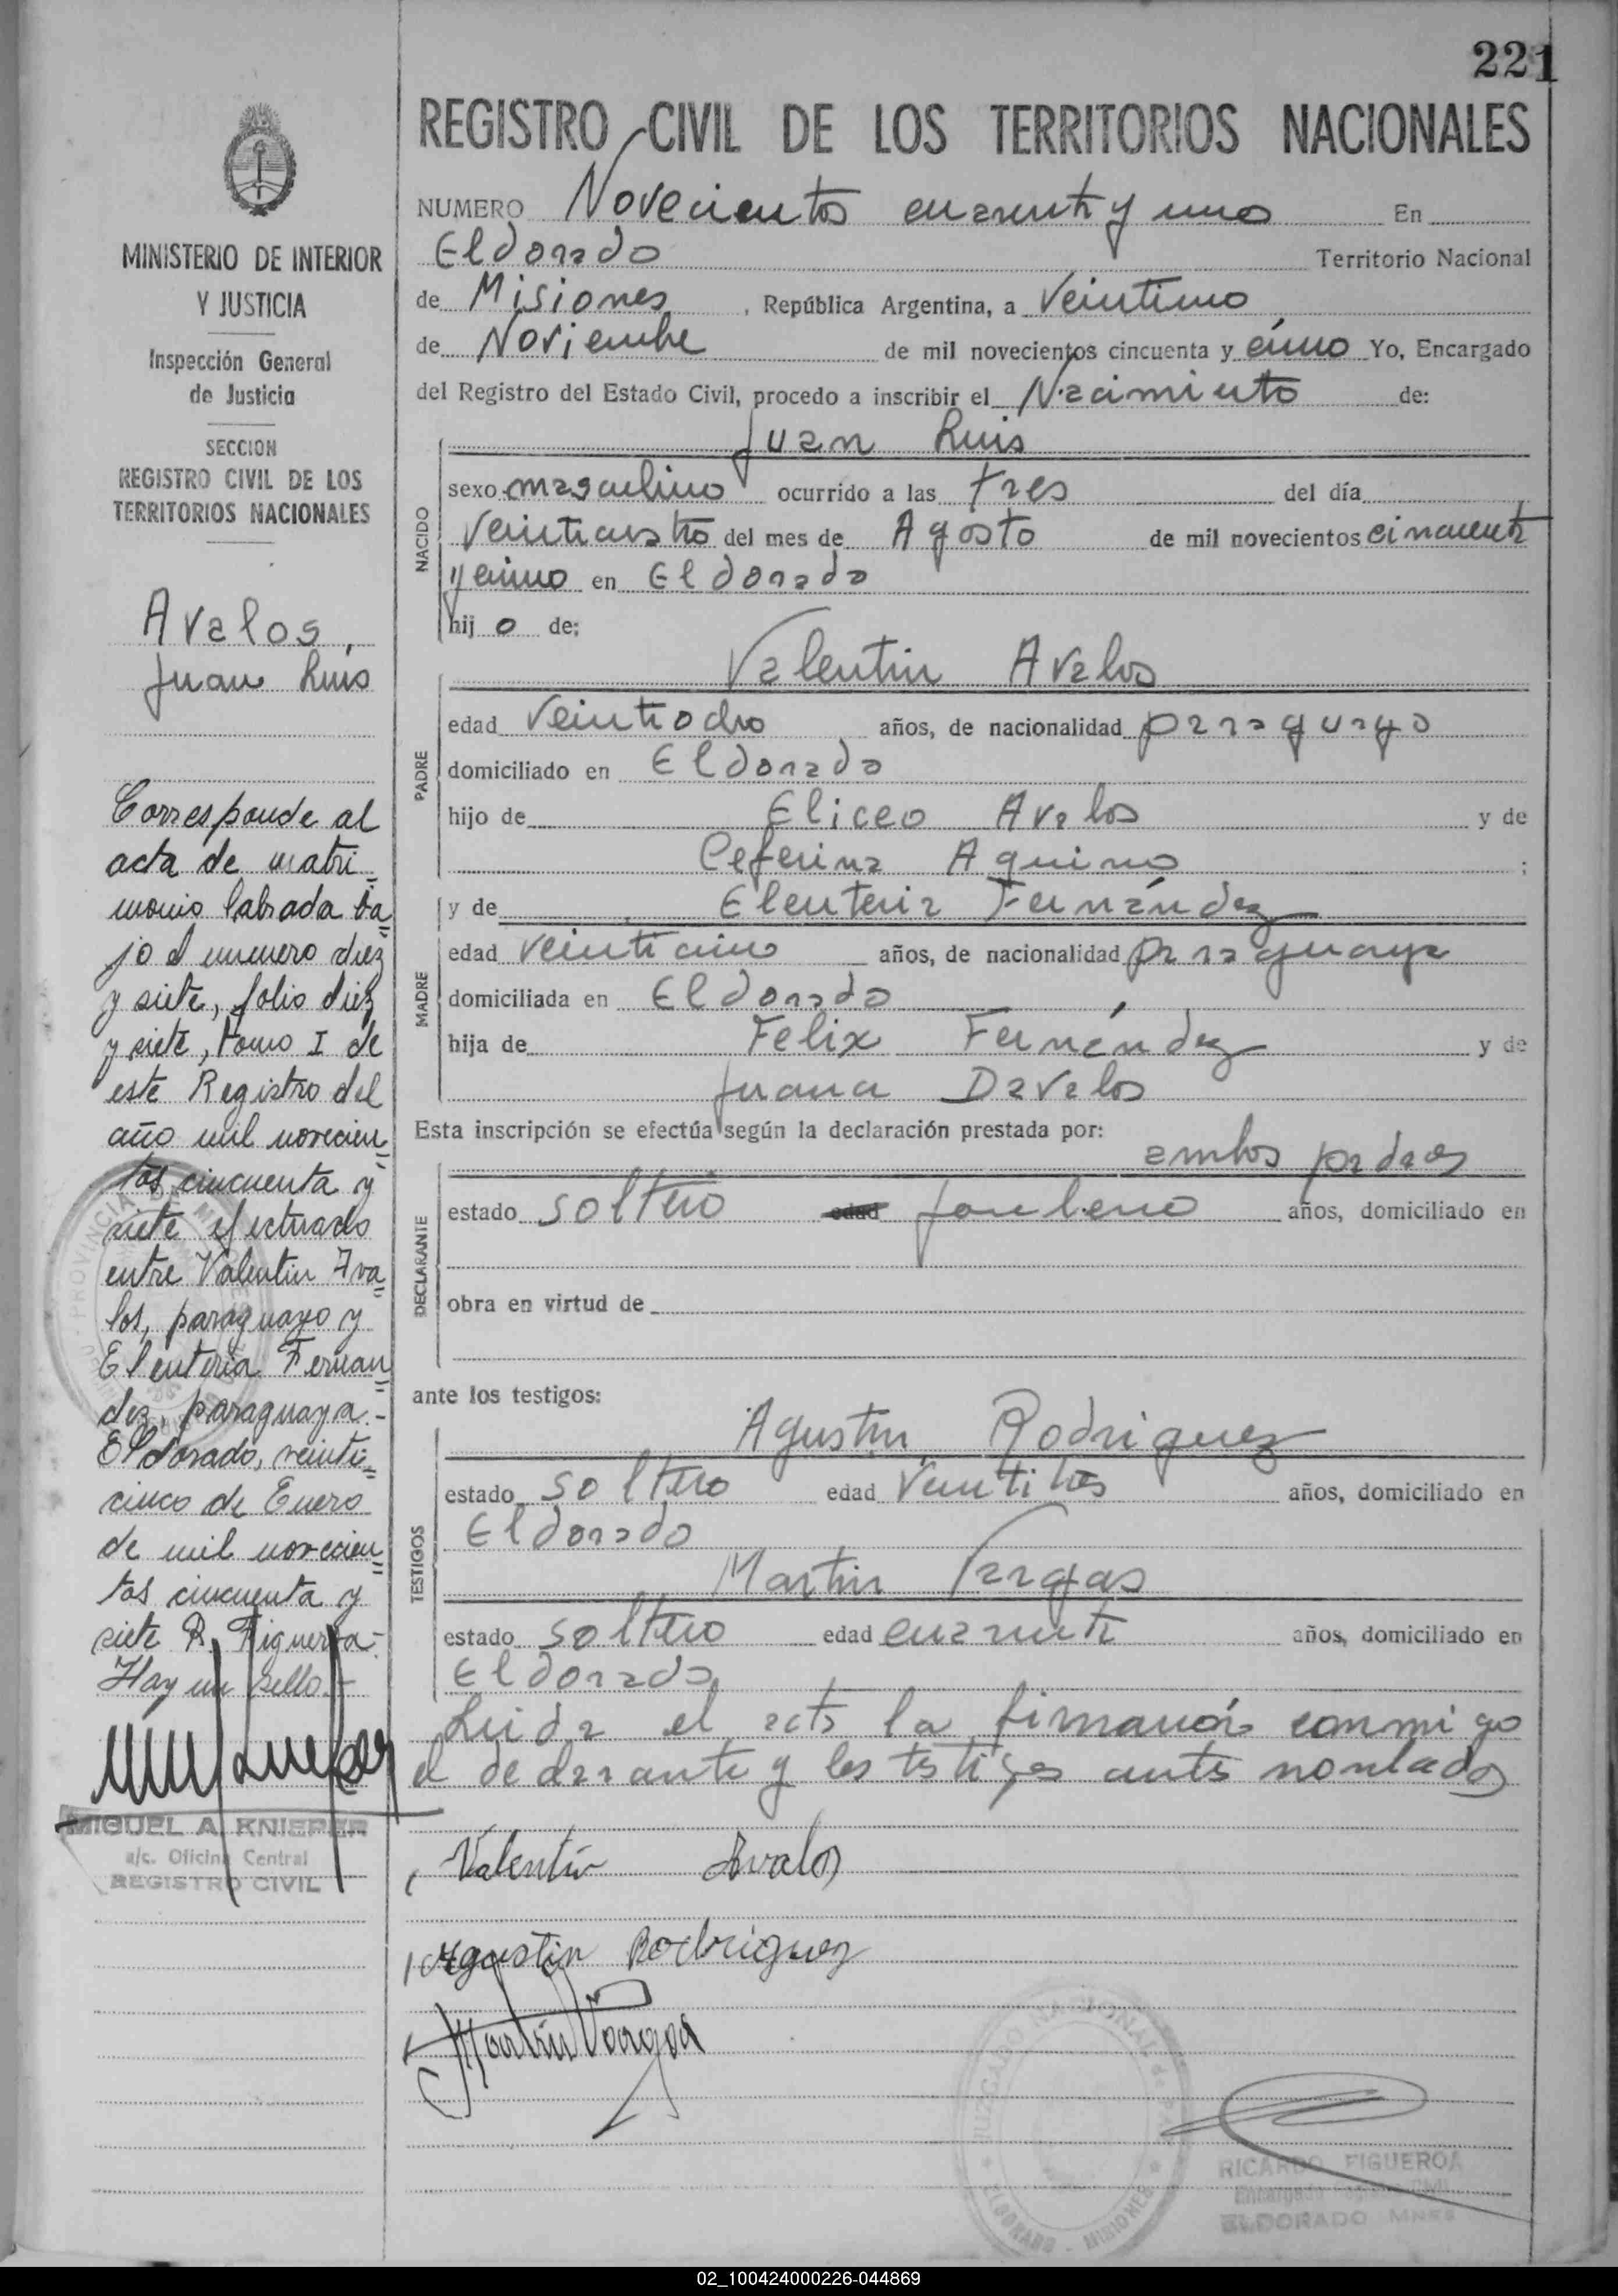 221
REGISTRO CIVIL DE LOS TERRITORIOS NACIONALES
NUMERO Novecientos cuarenta y uno En
Eldorado Territorio Nacional
de Misiones , República Argentina, a Veintiuno
de Noviembre de mil novecientos cincuenta y cinco Yo, Encargado
del Registro del Estado Civil, procedo a inscribir el Nacimiento de:
Juan Luis
NACIDO
sexo masculino ocurrido a las tres del día
Veinticuatro del mes de Agosto de mil novecientos cincuenta
y cinco en Eldorado
hij o de:
Valentin Avalos
PADRE
edad Veintiocho años, de nacionalidad paraguayo
domiciliado en Eldorado
hijo de Eliceo Avalos y de
Ceferina Aquino ;
y de Eleuteria Fernández
MADRE
edad veinticinco años, de nacionalidad paraguaya
domiciliada en Eldorado
hija de Felix Fernández y de
Juana Davalos
Esta inscripción se efectúa según la declaración prestada por:
ambos padres
DECLARANTE
estado soltero edad jornalero años, domiciliado en
obra en virtud de
ante los testigos:
Agustin Rodriguez
TESTIGOS
estado soltero edad Veintitres años, domiciliado en
Eldorado
Martin Vargas
estado soltero edad cuarenta años, domiciliado en
Eldorado
Leida el acta la firmaron conmigo
el declarante y los testigos antes nombrados
Valentin Avalos
Agustin Rodriguez
Martin Vargas
JUZGADO NACIONAL DE PAZ
ELDORADO - MISIONES
RICARDO FIGUEROA
Encargado
ELDORADO MNES
MINISTERIO DE INTERIOR
Y JUSTICIA
Inspección General
de Justicia
SECCION
REGISTRO CIVIL DE LOS
TERRITORIOS NACIONALES
Avalos,
Juan Luis
Corresponde al
acta de matri=
monio labrada ba=
jo el numero diez
y siete, folio diez
y siete, tomo I de
este Registro del
año mil novecien=
tos cincuenta y
siete efectuado
entre Valentin Ava=
los, paraguayo y
Eleuteria Fernan=
dez, paraguaya.-
Eldorado, veinti=
cinco de Enero
de mil novecien=
tos cincuenta y
siete R. Figueroa-
Hay un sello.-
MIGUEL A. KNIEPER
a/c. Oficina Central
REGISTRO CIVIL
02_100424000226-044869